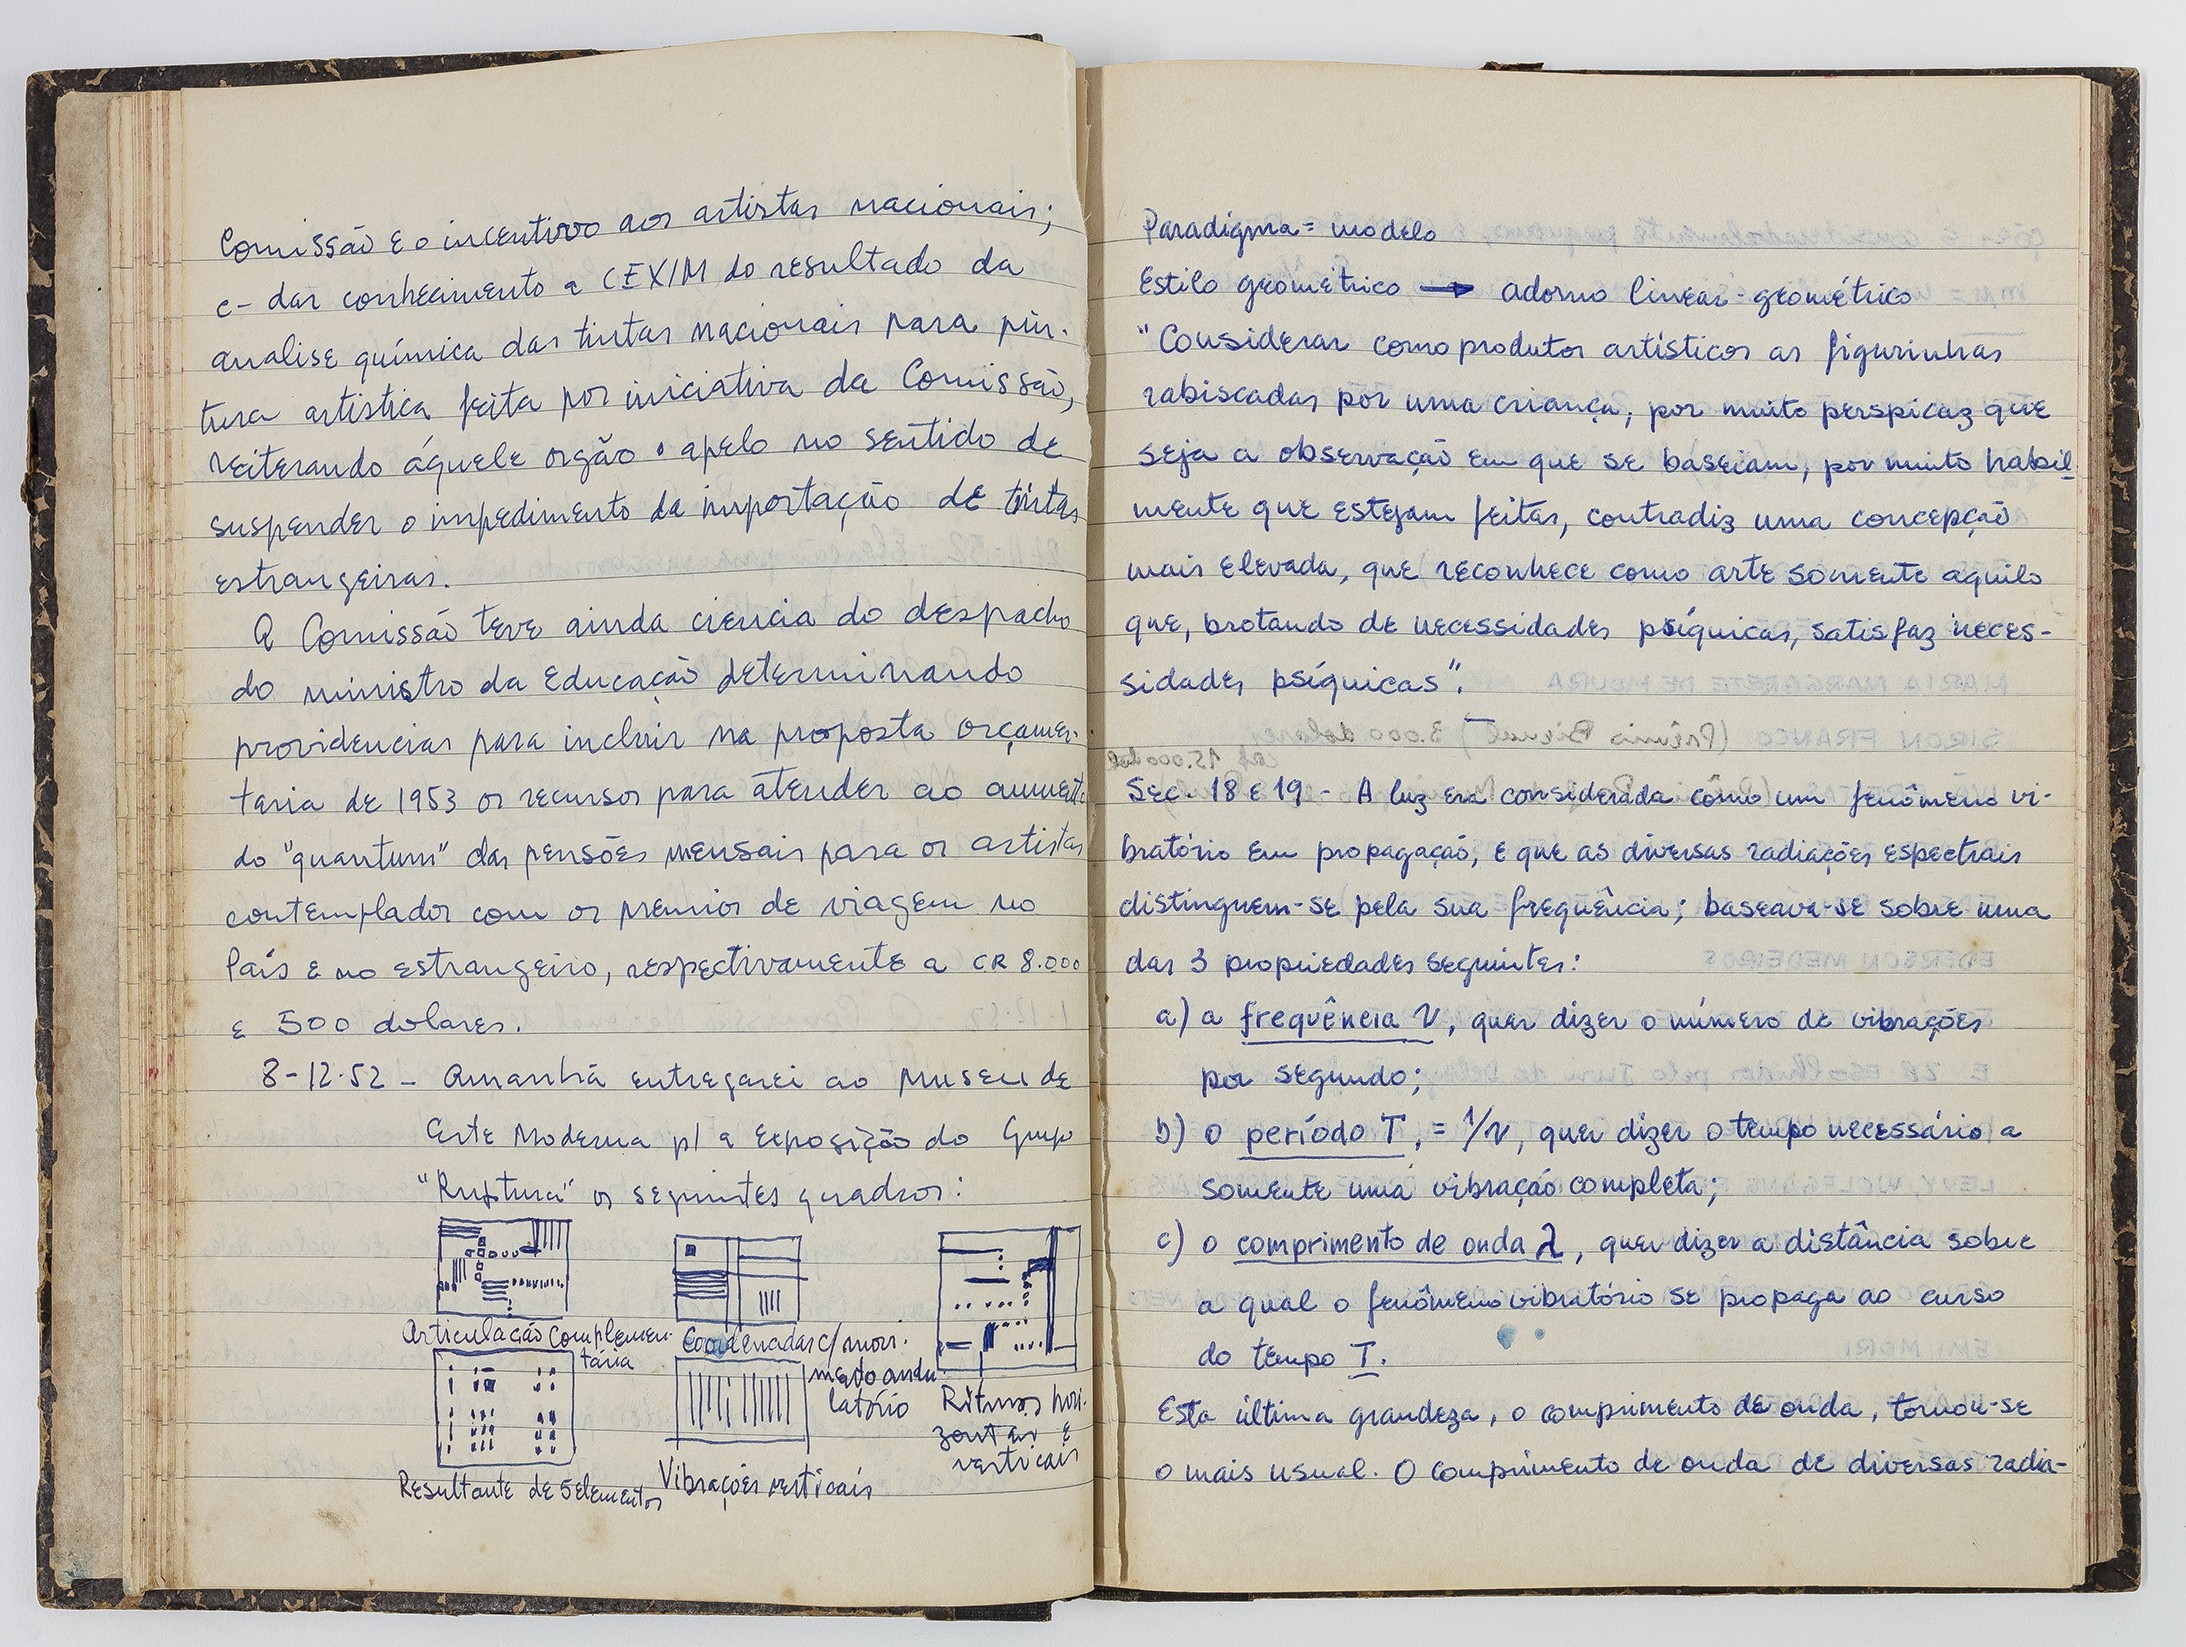 Comissão e o incentivo aos artistas nacionais;
c- dar conhecimento a CEXIM do resultado da
analise química das tintas nacionais para pin-
tura artistica feita por iniciativa da Comissão,
reiterando áquele orgão o apelo no sentido de
suspender o impedimento da importação de tintas
estrangeiras.
A Comissão teve ainda ciencia do despacho
do ministro da Educação determinando
providencias para incluir na proposta orçamen-
taria de 1953 os recursos para atender ao aumento
do "quantum" das pensões mensais para os artistas
contemplados com os premios de viagem no
País e no estrangeiro, respectivamente a CR 8.000
e 500 dolares.
8-12-52 - Amanhã entregarei ao Museu de
Arte Moderna p/ a Exposição do Grupo
"Ruptura" os seguintes quadros:
Articulação Complemen-
tária
Coordenadas c/ movi-
mento ondu
latório
Ritmos hori-
zontais e
verticais
Resultante de 5 elementos
Vibrações verticais
Paradigma = modelo
Estilo geométrico → adorno linear-geométrico
"Considerar como produtos artísticos as figurinhas
rabiscadas por uma criança, por muito perspicaz que
seja a observação em que se baseiam, por muito habil
mente que estejam feitas, contradiz uma concepção
mais elevada, que reconhece como arte somente aquilo
que, brotando de necessidades psíquicas, satisfaz neces-
sidades psíquicas".
Séc. 18 e 19 - A luz era considerada como um fenômeno vi-
bratório em propagação, e que as diversas radiações espectrais
distinguem-se pela sua frequência; baseava-se sobre uma
das 3 propriedades seguintes:
a) a frequência ν, quer dizer o número de vibrações
por segundo;
b) o período T, = 1/ν, quer dizer o tempo necessário a
somente uma vibração completa;
c) o comprimento de onda λ, quer dizer a distância sobre
a qual o fenômeno vibratório se propaga ao curso
do tempo T.
Esta última grandeza, o comprimento de onda, tornou-se
o mais usual. O comprimento de onda de diversas radia-